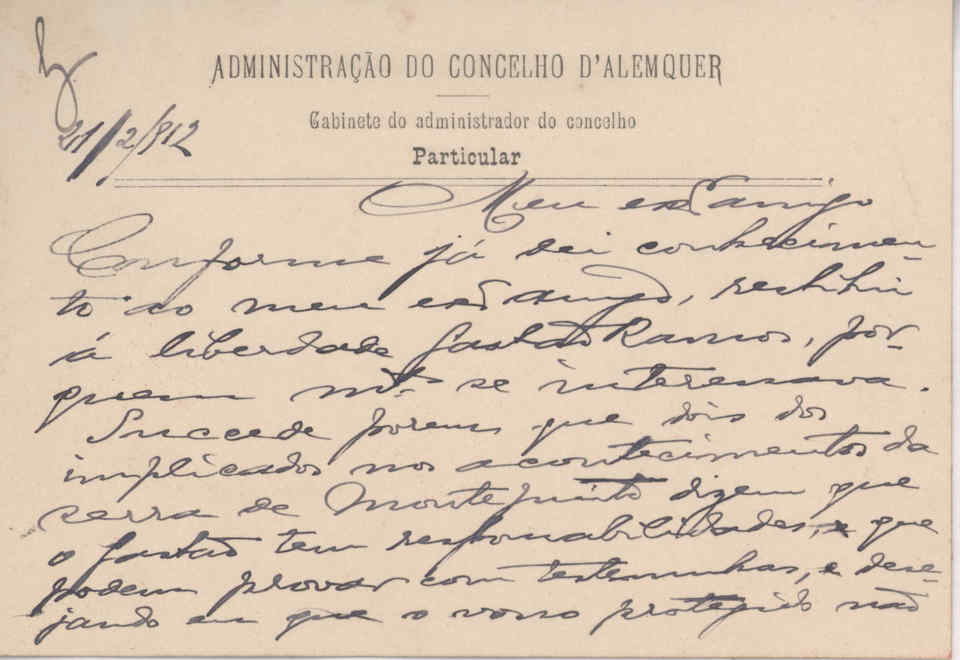 ADMINISTRAÇÃO DO CONCELHO D'ALEMQUER
Gabinete do administrador do concelho
Particular
21/2/912
Meu exmo amigo
Conforme já dei conhecimen-
to ao meu exmo amigo, restitui
á liberdade Gastão Ramos, por
quem mto se interessava.
Succede porem que dois dos
implicados nos acontecimentos da
serra de Montejunto dizem que
o Gastão tem responsabilidades, e que
podem provar com testemunhas, e dese-
jando eu que o vosso protegido não